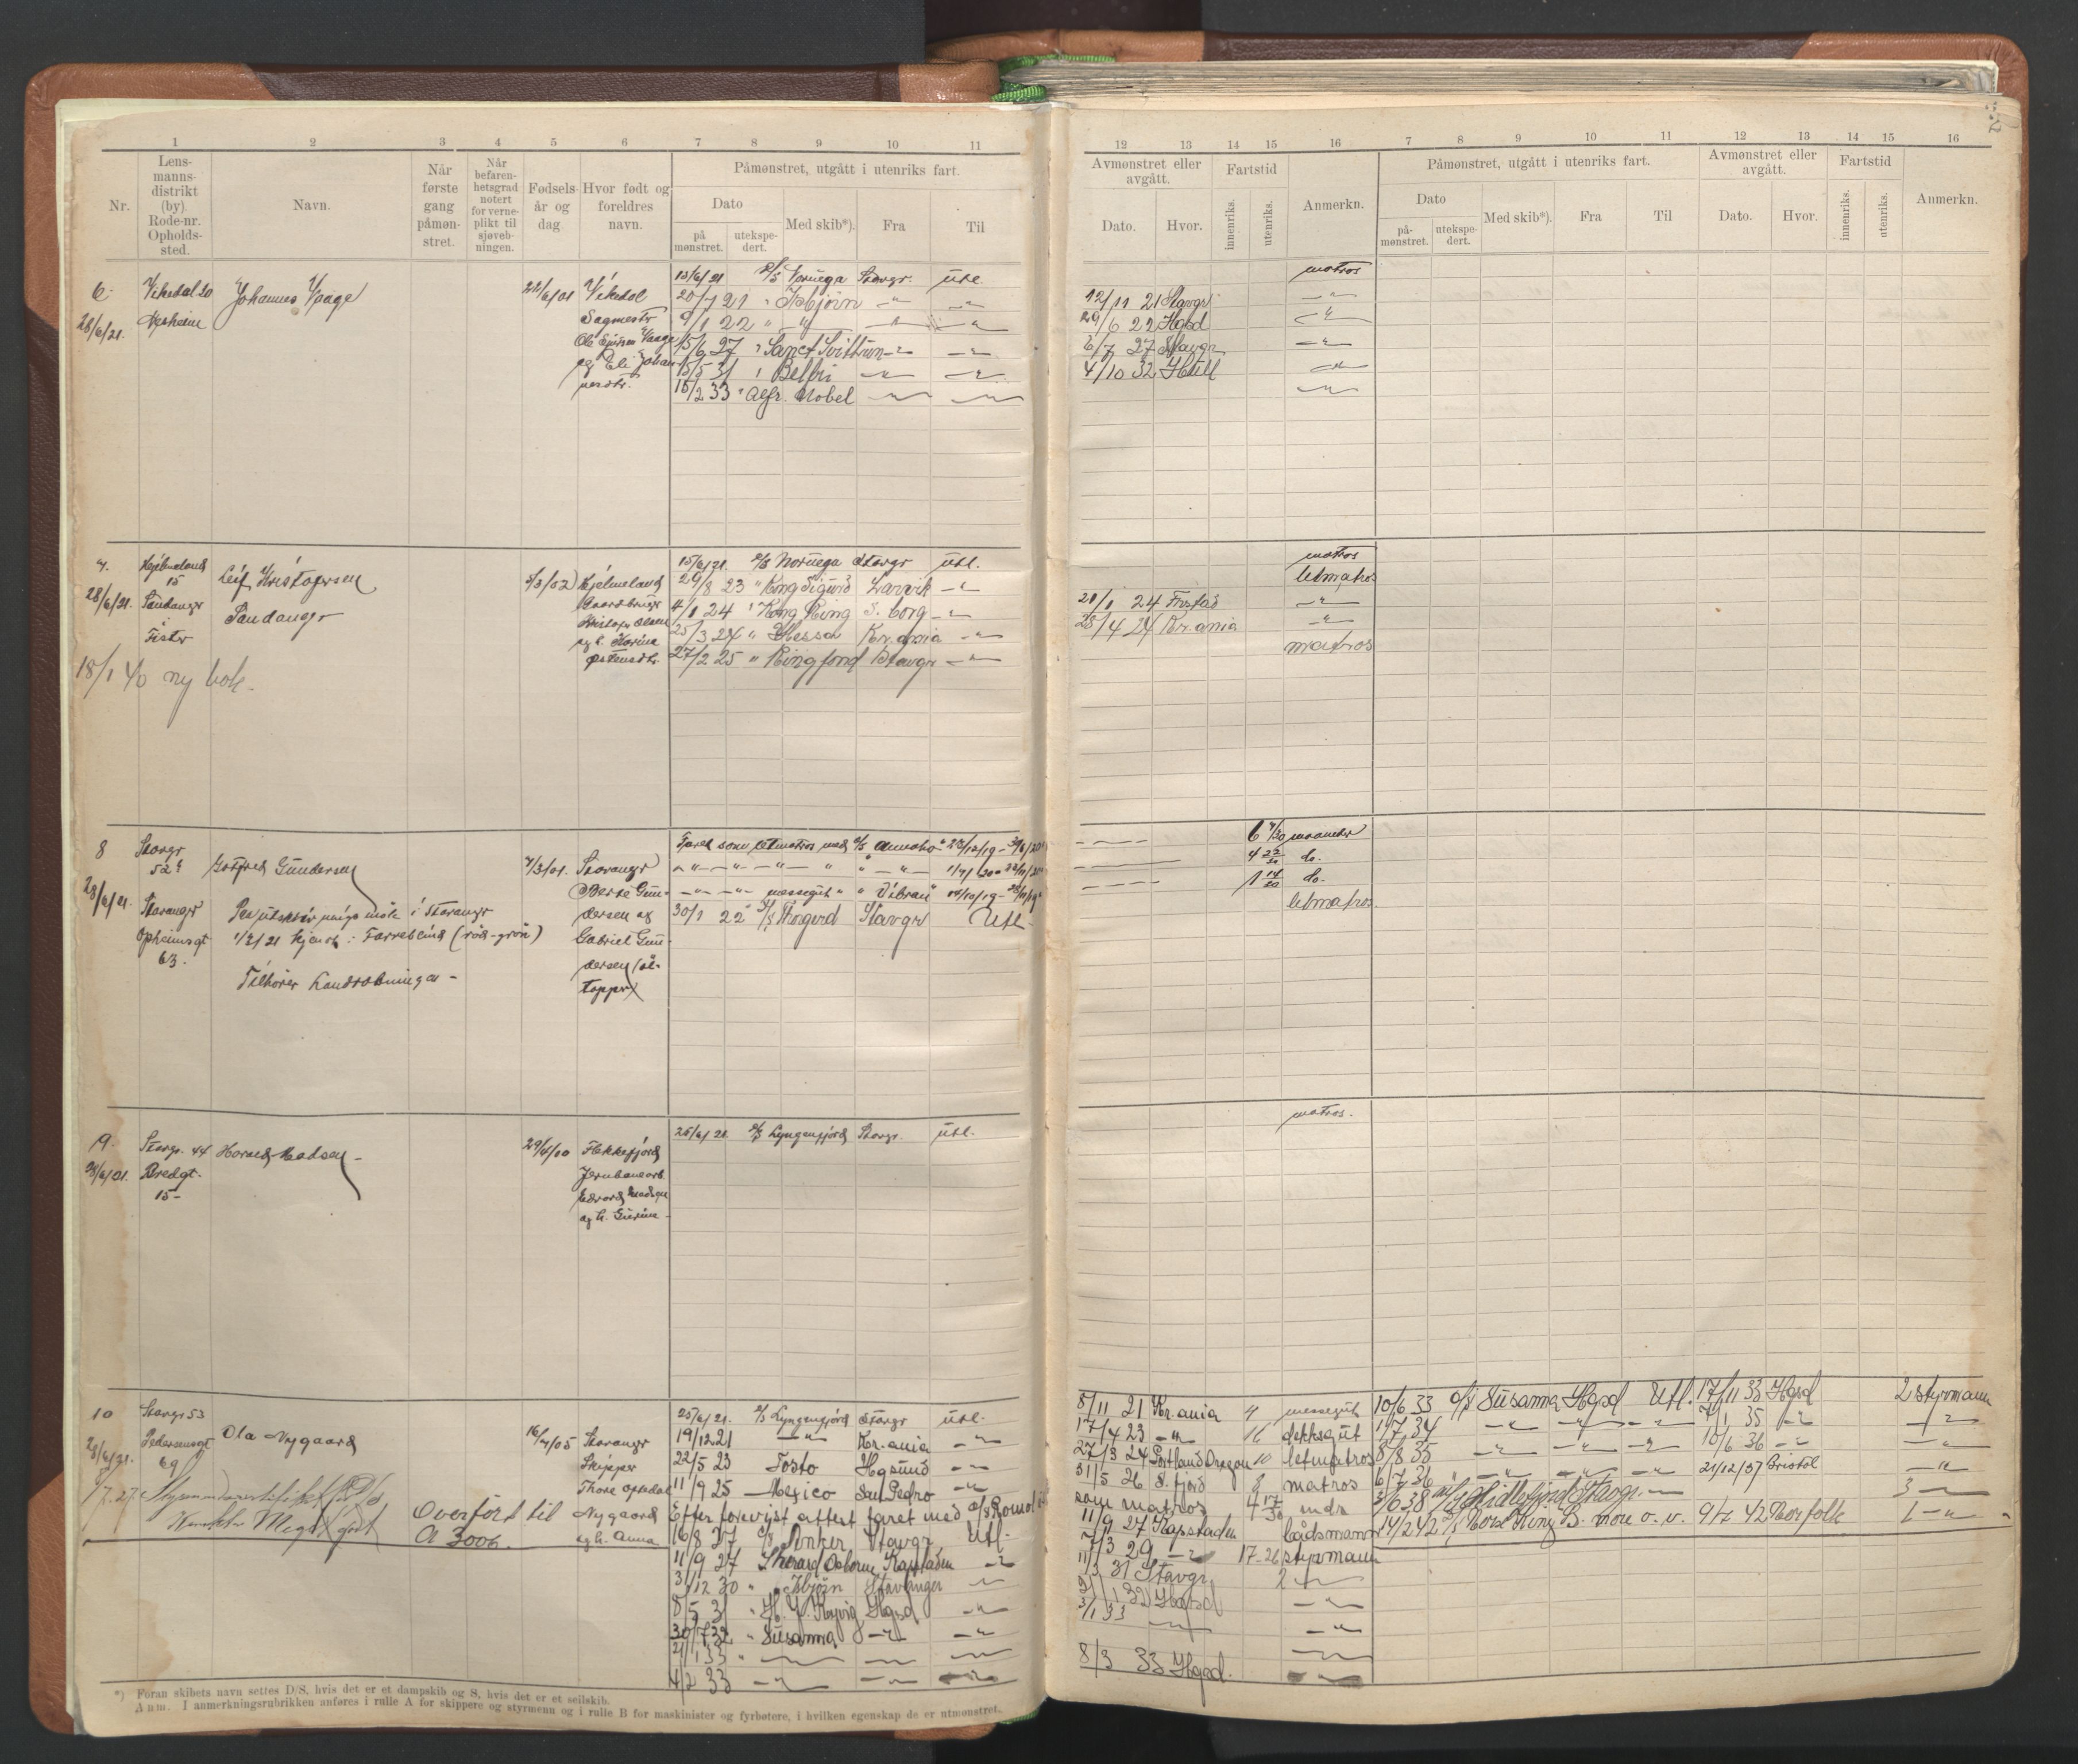 32
1 2 3 4 5 6 7 8 9 10 11
Nr.
Lens-
manns-
distrikt
(by).
Rode-nr.
Opholds-
sted.
Navn.
Når
første
gang
påmøn-
stret.
Når
befaren-
hetsgrad
notert
for verne-
plikt til
sjøveb-
ningen.
Fødsels-
år og
dag
Hvor født og
foreldres
navn.
Påmønstret, utgått i utenriks fart.
Dato
på
mønstret.
utekspe-
dert.
Med skib*).
Fra
Til
12 13 14 15 16 7 8 9 10 11 12 13 14 15 16
Avmønstret eller
avgått.
Dato.
Hvor.
Fartstid
innenriks.
utenriks.
Anmerkn.
Påmønstret, utgått i utenriks fart.
Dato
på-
mønstret.
utekspe-
dert.
Med skib*).
Fra
Til
Avmønstret eller
avgått.
Dato.
Hvor.
Fartstid
innenriks.
utenriks.
Anmerkn.
6
28/6/21.
Vikedal 20
Johannes Vaage
22/6/01
Vikedal
15/6/21 D/S Noruega Stavgr. utl.
20/7 21 " Isbjørn -"- -"-
9/1 22 " " -"- -"-
15/6 27 " Sanct Svithun -"- -"-
15/5 31 " Belfri -"- -"-
15/2 33 " Alfr. Nobel -"- -"-
matros
12/11 21 Stavgr -"-
29/6 22 Hgsd -"-
6/7 27 Stavgr -"-
4/10 32 Hull -"-
-"-
7.
28/6/21.
Hjelmeland
15
Sandanger
Fister
18/1 40 ny bok.
Leif Kristofersen
Sandanger
5/3/02
Hjelmeland
Gaardbruger
Kristofer Olsen
og h. Karine
Østensdtr.
15/6/21. D/S Noruega Stavgr utl.
29/8 23 " Kong Sigurd Larvik -"-
4/1 24 " Kong Ring S. borg -"-
25/3 24 " Hessa Kr.ania -"-
27/2 25 " Ringfond Stavgr -"-
matros
letmatros
21/1 24 Fr.stad -"-
28/4 24 Kr.ania -"-
matros
8
28/6/21.
Stavgr
52
Stavanger
Opheimsgt
63.
Gotfred Gundersen
Sesjutskrivningsmøte i Stavanger
1/2/21 kjendt: Farveblind (rød-grøn)
Tilhører Landrobningen -
7/3/01.
Stavanger
Berte Gun-
dersen og
Gabriel Gun-
dersen
Faret som letmatros med
messegut " "
30/1 22 Stavgr Utl.
6 7/30 maaneder
4 22/30 do.
do.
letmatros
9.
28/6/01.
Stavgr. 44
Bredgt.
15-
Harald Madsen -
Flekkefjord
Jernbanearb.
Edvard Madsen
og h. Gurine -
25/6/21. D/S Lyngenfjord Stavgr. utl.
matros.
10
28/6/21.
Stavgr 53
Pedersgt
69
Ola Nygaard
Overført til
A 3006.
16/7/05
Stavanger
Skipper
Thore Opsdal
Nygaard
og h. Anna
25/6/21. D/S Lyngenfjord Stavgr utl.
19/12 21 -"- Kr.ania -"-
22/5 23 Tosto Hgsund -"-
11/9 25 -Mexico San Pedro -"-
Efter forevist attest faret med
16/8 27 D/S Anker Stavgr Utl.
11/9 27 " Sherard Osborne Kapstaden -"-
3/12 30 " Isbjørn Stavanger -"-
8/5 31 Hgsd -"-
30/7 32 " Susanna -"- -"-
21/1 33 " -"- -"- -"-
4/2 33 -"- -"- -"-
8/11 21 Kr.ania 4 messegut
17/4 23 -"- 16 dekksgut
27/3 24 Portland Oregon 10 letmatros
31/5 26 S. fjord 8 matros
som matros 4 17/30 mdr
11/9 27 Kapstaden båtsmann
7/3 29 -"- 17-26 styrmann
11/3 31 Stavgr. 2 -"-
-"-
3/1 33 -"- -"-
8/3 33 Hgsd.
10/6 33 D/S Susanna Hgsd Utl. 17/11 33 Hgsd 2 styrmann
1/7 34 -"- -"- -"- 7/1 35 -"- -"-
8/8 35 -"- -"- -"- 10/6 36 -"- -"-
6/7 36 -"- -"- -"- 21/12/37 Bristol -"-
38 Hidlefjord Stavgr. -"- 3 -"-
14/2 42 D/S Norse King B. more o. v. 9/7 42 Norfolk 1 -"-
*) Foran skibets navn settes D/S, hvis det er et dampskib og S, hvis det er et seilskib.
Anm. I anmerkningsrubrikken anføres i rulle A for skippere og styrmenn og i rulle B for maskinister og fyrbøtere, i hvilken egenskap de er utmønstret.